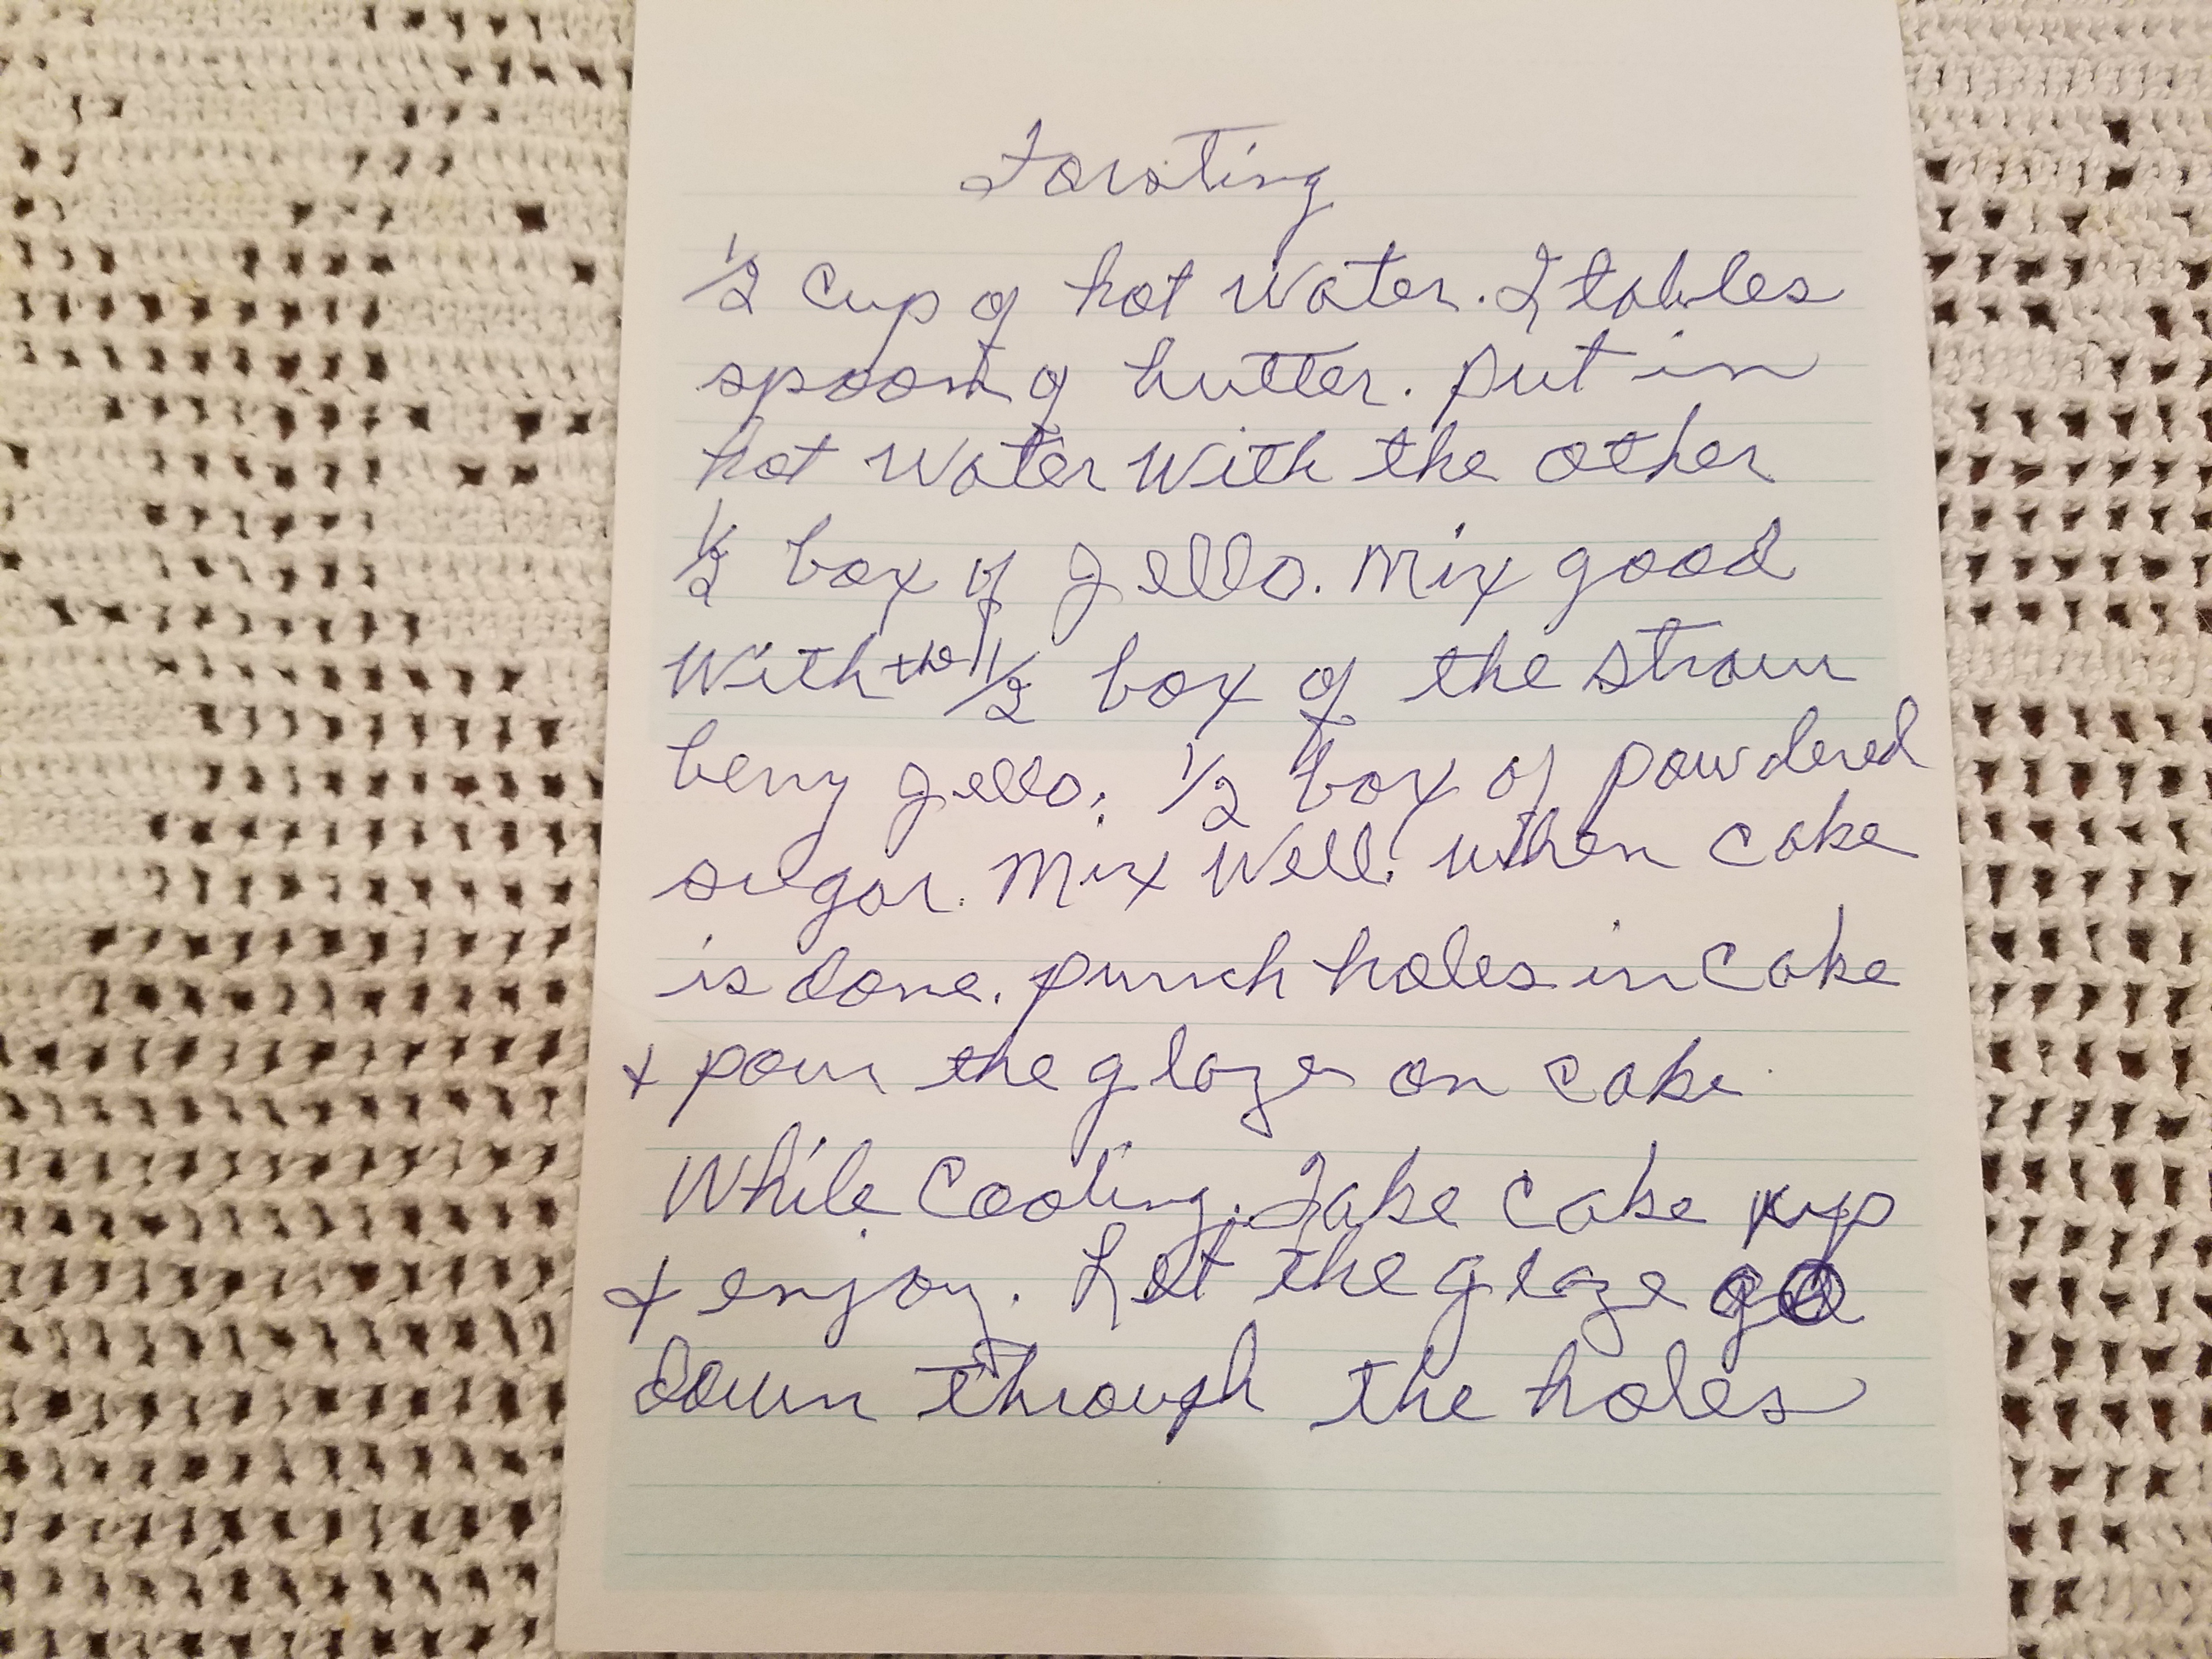 Forsting
1/2 cup of hot water. 2 tables
spoon of butter. put in
hot water with the other
1/2 box of jello. Mix good
with the 1/2 box of the straw
berry jello. 1/2 box of powdered
sugar. Mix well. when cake
is done. punch holes in cake
+ pour the glaze on cake
while cooling. Take cake up
+ enjoy. Let the glaze go
down through the holes